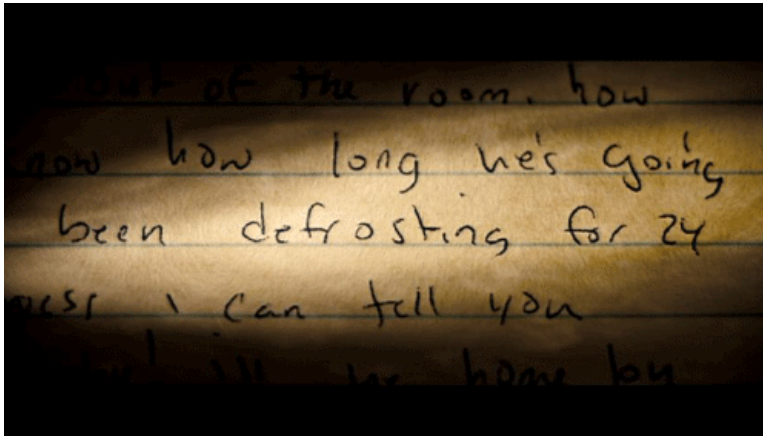 out of the room. how
now how long he's going
been defrosting for 24
ess i can tell you
i'll be home by